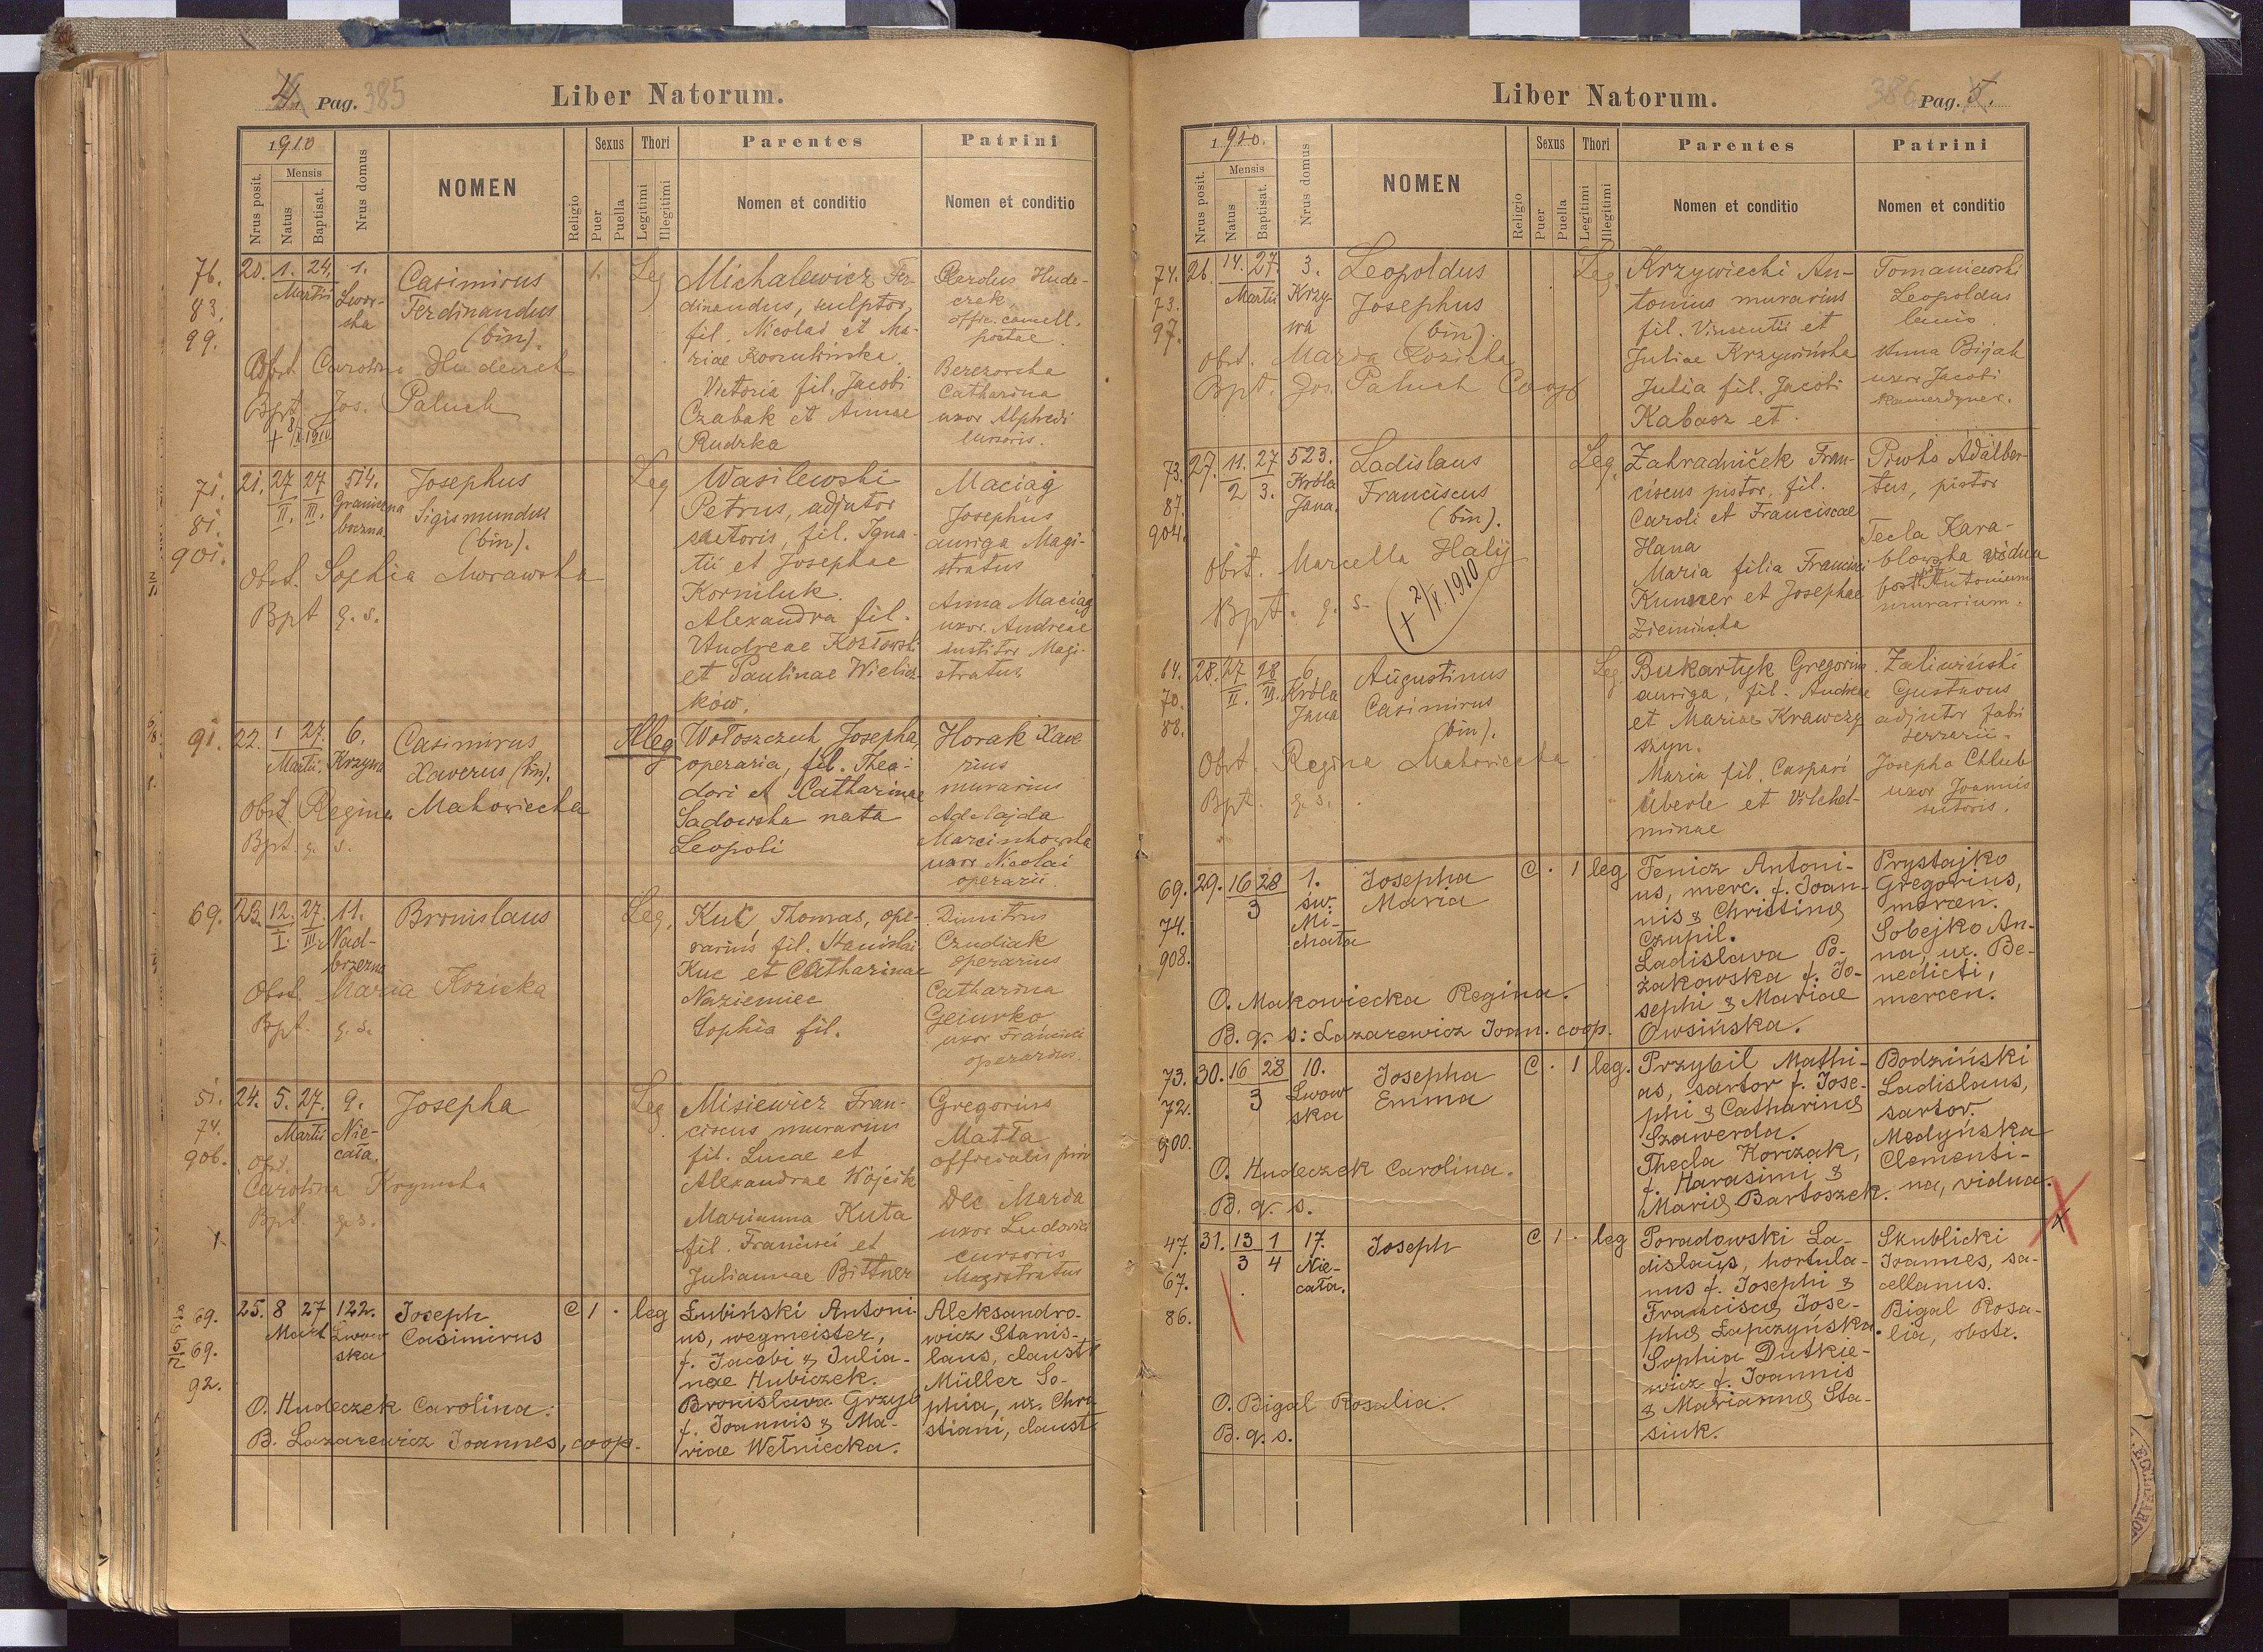 4. Pag. 385
Liber Natorum.
1910
Nrus posit.
Mensis
Natus
Baptisat.
Nrus domus
NOMEN
Religio
Sexus
Puer
Puella
Thori
Legitimi
Illegitimi
Parentes
Nomen et conditio
Patrini
Nomen et conditio
76.
83.
99.
20. 1. 24. 1.
Martii Lwow-
ska
Casimirus
Ferdinandus
(bin).
1. Leg
Obst. Carolina Hudeczek
Bpt. Jos. Paluch
Michalewicz Fer-
dinandus, sculptor,
fil. Nicolai et Ma-
riae
Victoria fil. Jacobi
Czabak et Annae
Rudzka
Carolus Hude-
czek
offic. cancell.
postae.
Berezowska
Catharina
uxor Alphredi
cursoris.
71.
81.
901.
21. 27 27 514.
II. III. Graniczna
boczna
Josephus
Sigismundus
(bin).
Leg
Obst. Sophia Morawska
Bpt q. s.
Wasilewski
Petrus, adjutor
sartoris, fil. Igna-
tii et Josephae
Korniluk.
Alexandra fil.
Andreae Kozłowski
et Paulinae Wielicz-
ków.
Maciąg
Josephus
auriga Magi-
stratus
Anna Maciąg
uxor Andreae
institor Magi-
stratus
91.
22. 1 27. 6.
Martii. Krzywa
Casimirus
Xaverus (bin).
Illeg
Obst. Regina Makowiecka
Bpt. q. s.
Wołoszczuk Josepha,
operaria, fil. Theo-
dori et Catharinae
Sadowska nata
Leopoli
Horak Xave
rius
murarius
Adelajda
Marcinkowska
uxor Nicolai
operarii.
69.
23. 12. 27. 11.
I. III. Nad-
brzezna
Bronislaus
Leg.
Obst. Maria Kozicka
Bpt. q. s.
Kuc, Thomas, ope-
rarius fil. Stanislai
Kuc et Catharinae
Naziemiec
Sophia fil.
Dimitrus
Czudiak
operarius
Catharina
Geiurko
uxor Francisci
operarius.
51.
74.
906.
24. 5. 27. 9.
Martii Nie-
cała.
Josepha
Leg
Obst.
Carolina Krzywska
Bpt. q. s.
Misiewicz Fran-
ciscus murarius
fil. Lucae et
Alexandrae Wójcik
Marianna Kuta
fil. Francisci et
Juliannae Bittner
Gregorius
Matła
officialis priv
Dec Maria
uxor Ludovici
cursoris
Magistratus
69.
69.
92.
25. 8 27 122.
Mart Lwow
ska
Joseph
Casimirus
C 1 . leg
O. Hudeczek Carolina.
B. Lazarewicz Joannes, coop.
Łubiński Antoni-
us, wegmeister,
f. Jacobi & Julia-
nae Hubiczek.
Bronislava Grzyb
f. Joannis & Ma-
riae Wełniecka.
Aleksandro-
wicz Stanis-
laus, claust
Müller So-
phia, ux. Chri
stiani, claust
Liber Natorum.
386 Pag. 5.
1910.
Nrus posit.
Mensis
Natus
Baptisat.
Nrus domus
NOMEN
Religio
Sexus
Puer
Puella
Thori
Legitimi
Illegitimi
Parentes
Nomen et conditio
Patrini
Nomen et conditio
74.
73.
97.
26. 14. 27. 3.
Martii Krzy-
wa
Leopoldus
Josephus
(bin).
Leg.
Obst. Maria Kozicka
Bpt. Jos. Paluch Coop
Krzywiecki An-
tonius murarius
fil. Vincentii et
Juliae Krzywińska
Julia fil. Jacobi
Kabasz et.
Tomaniewski
Leopoldus
lanio
Anna Bijak
uxor Jacobi
Kamerdyner.
73.
87.
904.
27. 11. 27 523.
2 3. Króla
Jana.
Ladislaus
Franciscus
(bin).
Leg.
Obst. Marcella Halij
Bpt. q. s.
(+ 2/V.1910)
Zahradniček Fran-
ciscus pistor, fil.
Caroli et Franciscae
Hana
Maria filia Francisci
Kunner et Josephae
Ziemińska
Piwko Adalber-
tus, pistor
Tecla Kara-
blowska vidua
post Antonium
murarium.
64.
70.
88.
28. 27 28 6
II. III. Króla
Jana
Augustinus
Casimirus
(bin).
Leg.
Obst. Regina Makowiecka
Bpt. q. s.
Bukartyk Gregorius
auriga, fil. Andreae
et Mariae Krawczy
szyn.
Maria fil. Caspari
Überle et Vilchel-
minae
Zaliwiński
Gustavus
adjutor fabri
ferrarii.
Josepha Chlub
uxor Joannis
sutoris.
69.
74.
908.
29. 16 28 1.
3 św.
Mi-
chała
Josepha
Maria
C . 1 leg
O. Makowiecka Regina.
B. q. s: Lazarewicz Joan. coop.
Fenicz Antoni-
us, merc. f. Joan-
nis & Christinæ
Czupil.
Ladislava Po-
żakowska f. Jo-
sephi & Mariae
Owsińska.
Prystajko
Gregorius,
mercen.
Sobejko An-
na, ux. Be-
nedicti,
mercen.
73.
72.
900.
30. 16 28 10.
3 Lwow
ska
Josepha
Emma
C . 1 leg.
O. Hudeczek Carolina.
B. q. s.
Przybil Mathi-
as, sartor f. Jose-
phi & Catharinæ
Szawerda.
Thecla Korczak,
f. Harasimi &
Mariæ Bartoszek.
Bodziński
Ladislaus,
sartor.
Medyńska
Clementi-
na, vidua.
47.
67.
86.
31. 13 1 17.
3 4 Nie-
cała.
Joseph
C 1 . leg
O. Bigal Rosalia.
B. q. s.
Poradowski La-
dislaus, hortula-
nus f. Josephi &
Franciscæ Jose-
phæ Łapczyńska.
Sophia Dutkie-
wicz f. Joannis
& Mariannæ Sta-
siuk.
Skublicki
Joannes, sa-
cellanus.
Bigal Rosa-
lia, obstr.